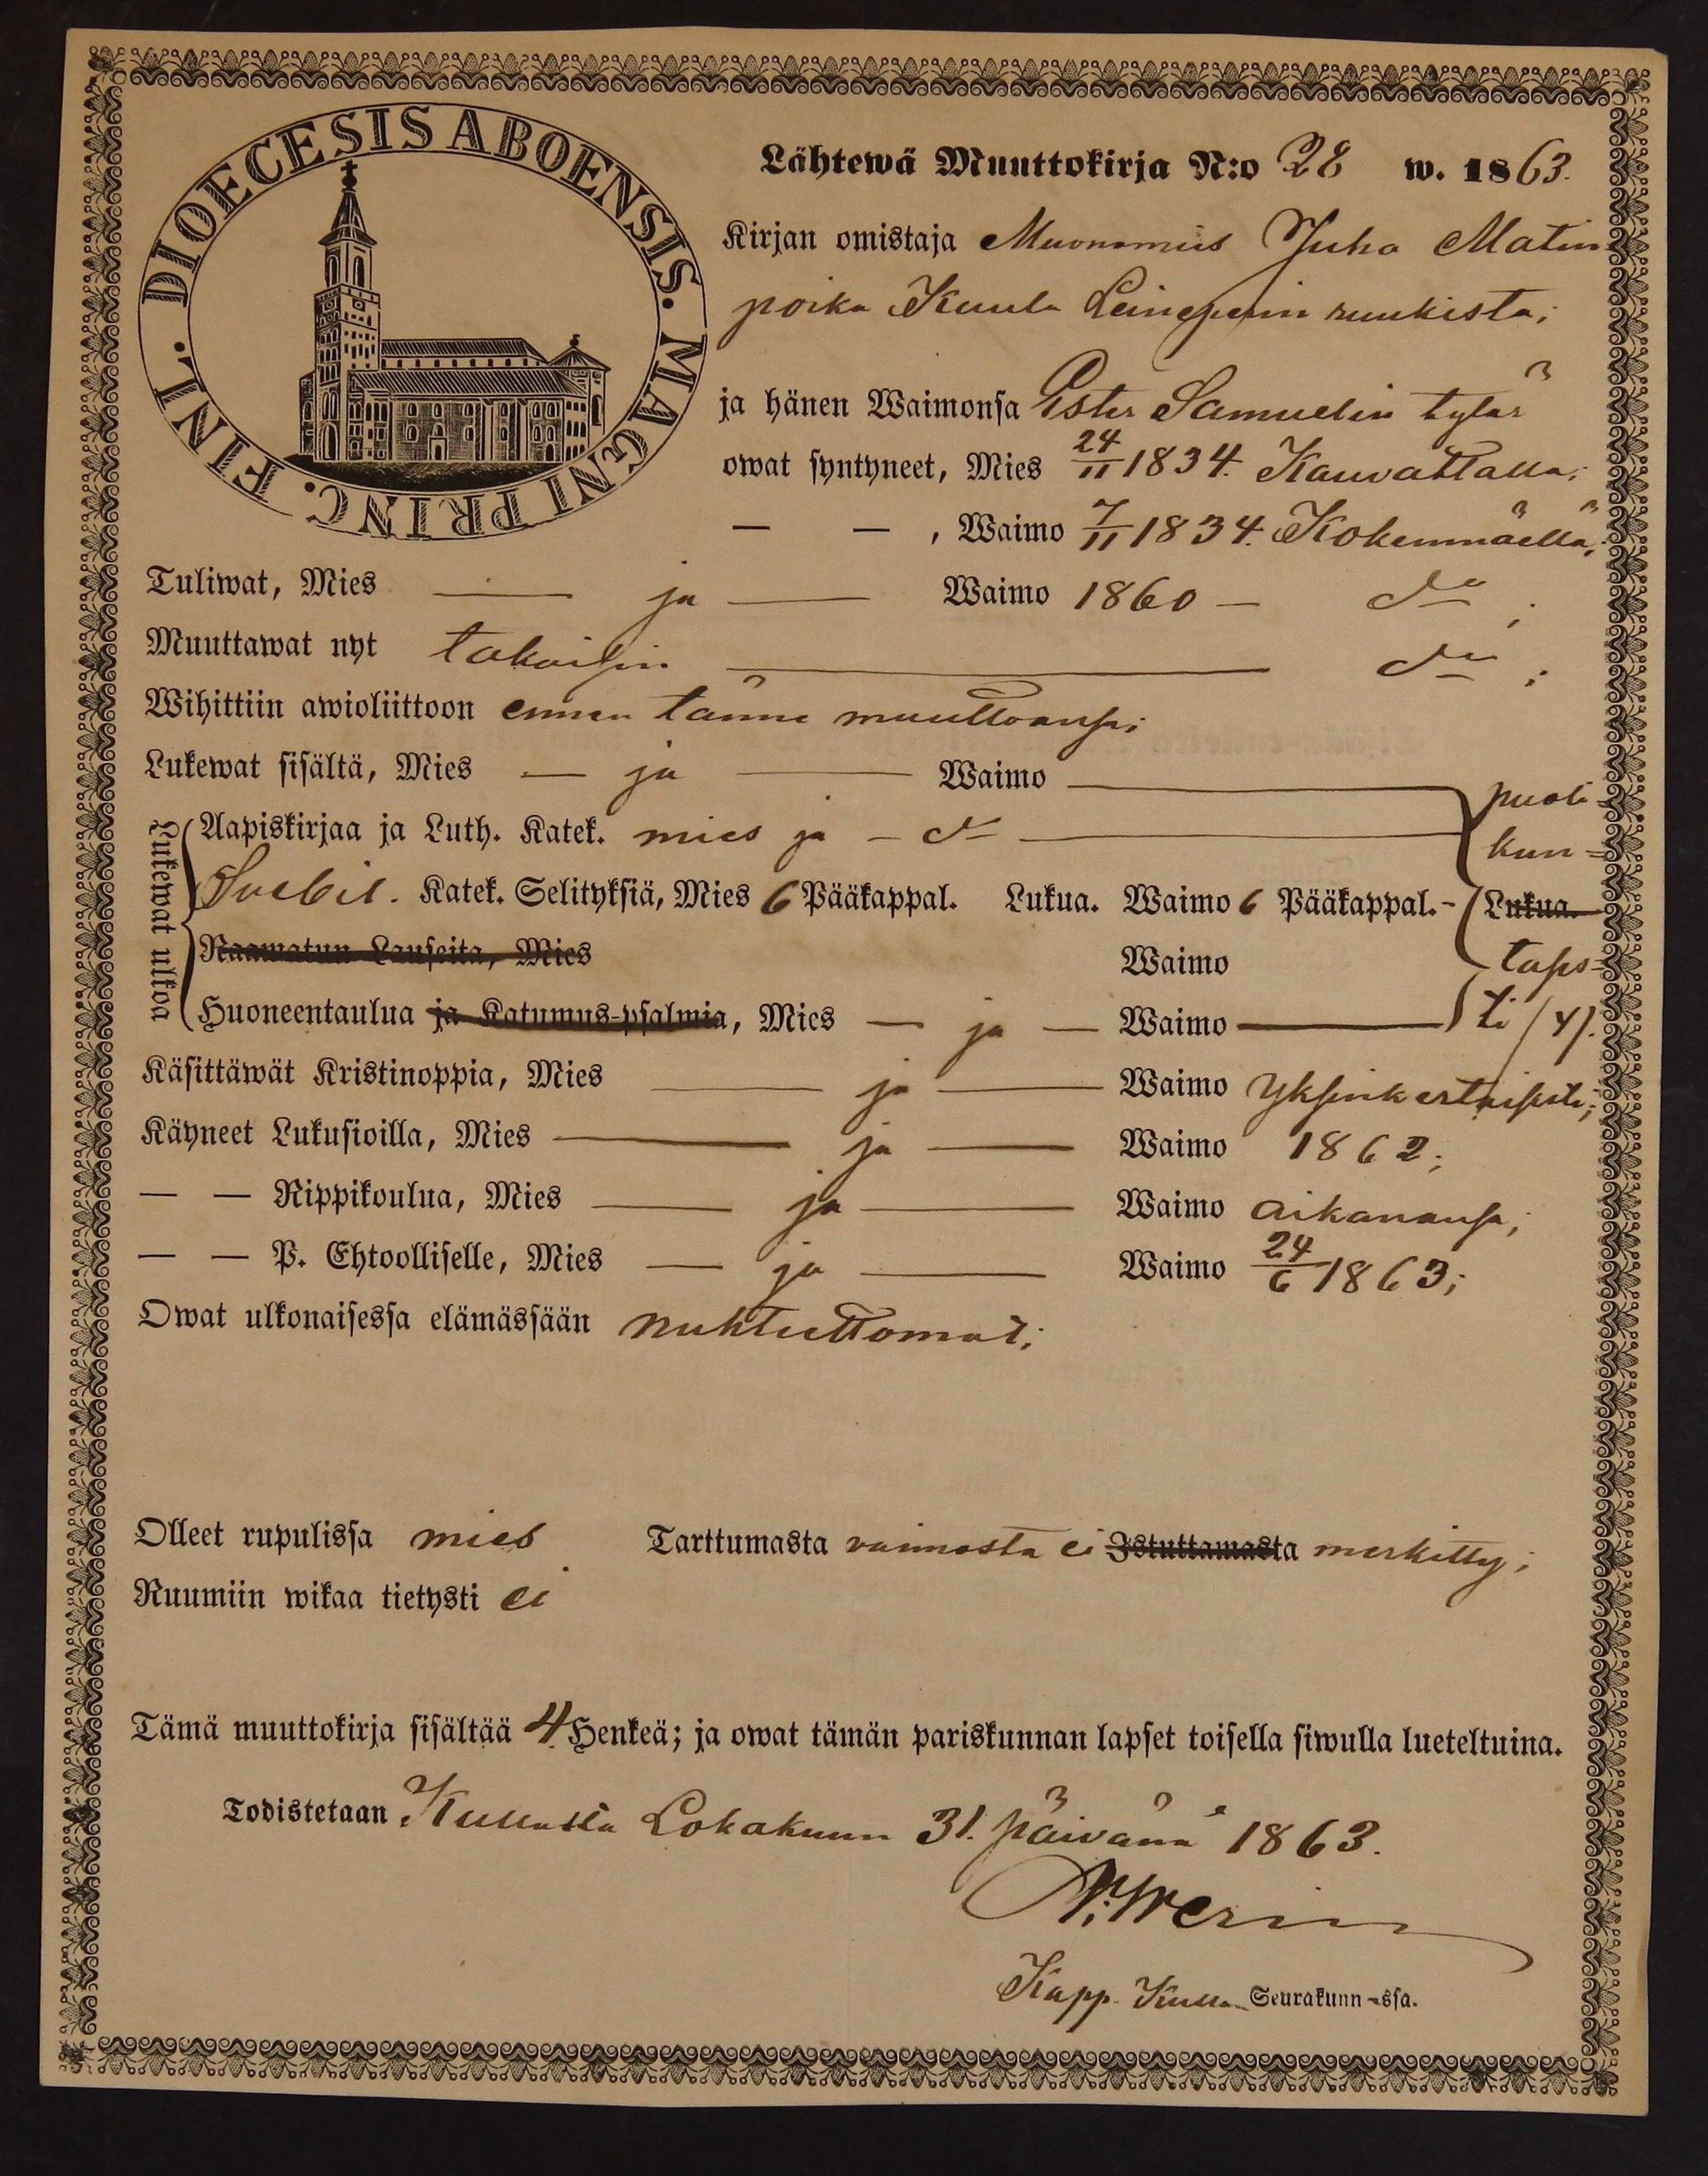 DIOECESIS ABOENSIS. MAGNI PRINC. FINL.
Lähtewä Muuttokirja N:o 28 w. 1863.
Kirjan omistaja Muonamies Juho Matin
poika Kuula Leineperin ruukista;
ja hänen Waimonsa Ester Samuelin tytär
owat syntyneet, Mies 24/11 1834. Kauvattalla;
— — , Waimo 7/11 1834. Kokemmäellä;
Tuliwat, Mies — ja — Waimo 1860 — do ;
Muuttawat nyt takaisin — do ;
Wihittiin awioliittoon ennen tänne muuttoansa;
Lukewat sisältä, Mies — ja — Waimo — puoli-
Lukewat ulkoa
Aapiskirjaa ja Luth. Katek. mies ja — do — kun=
Svebil. Katek. Selityksiä, Mies 6 Pääkappal. Lukua. Waimo 6 Pääkappal. - Lukua.
Raamatun Lauseita, Mies Waimo taps=
Huoneentaulua ja Katumus-psalmia, Mies — ja — Waimo — ti /4/.
Käsittäwät Kristinoppia, Mies — ja — Waimo yksinkertaisesti;
Käyneet Lukusioilla, Mies — ja — Waimo 1862;
— — Rippikoulua, Mies — ja — Waimo aikanansa;
— — P. Ehtoolliselle, Mies — ja — Waimo 24/6 1863;
Owat ulkonaisessa elämässään nuhteettomat;
Olleet rupulissa mies Tarttumasta vaimosta ei Istuttamasta merkitty;
Ruumiin wikaa tietysti ei
Tämä muuttokirja sisältää 4 Henkeä; ja owat tämän pariskunnan lapset toisella siwulla lueteltuina.
Todistetaan Kullasta Lokakuun 31. päivänä 1863.
Kapp. Kullan Seurakunn-ssa.